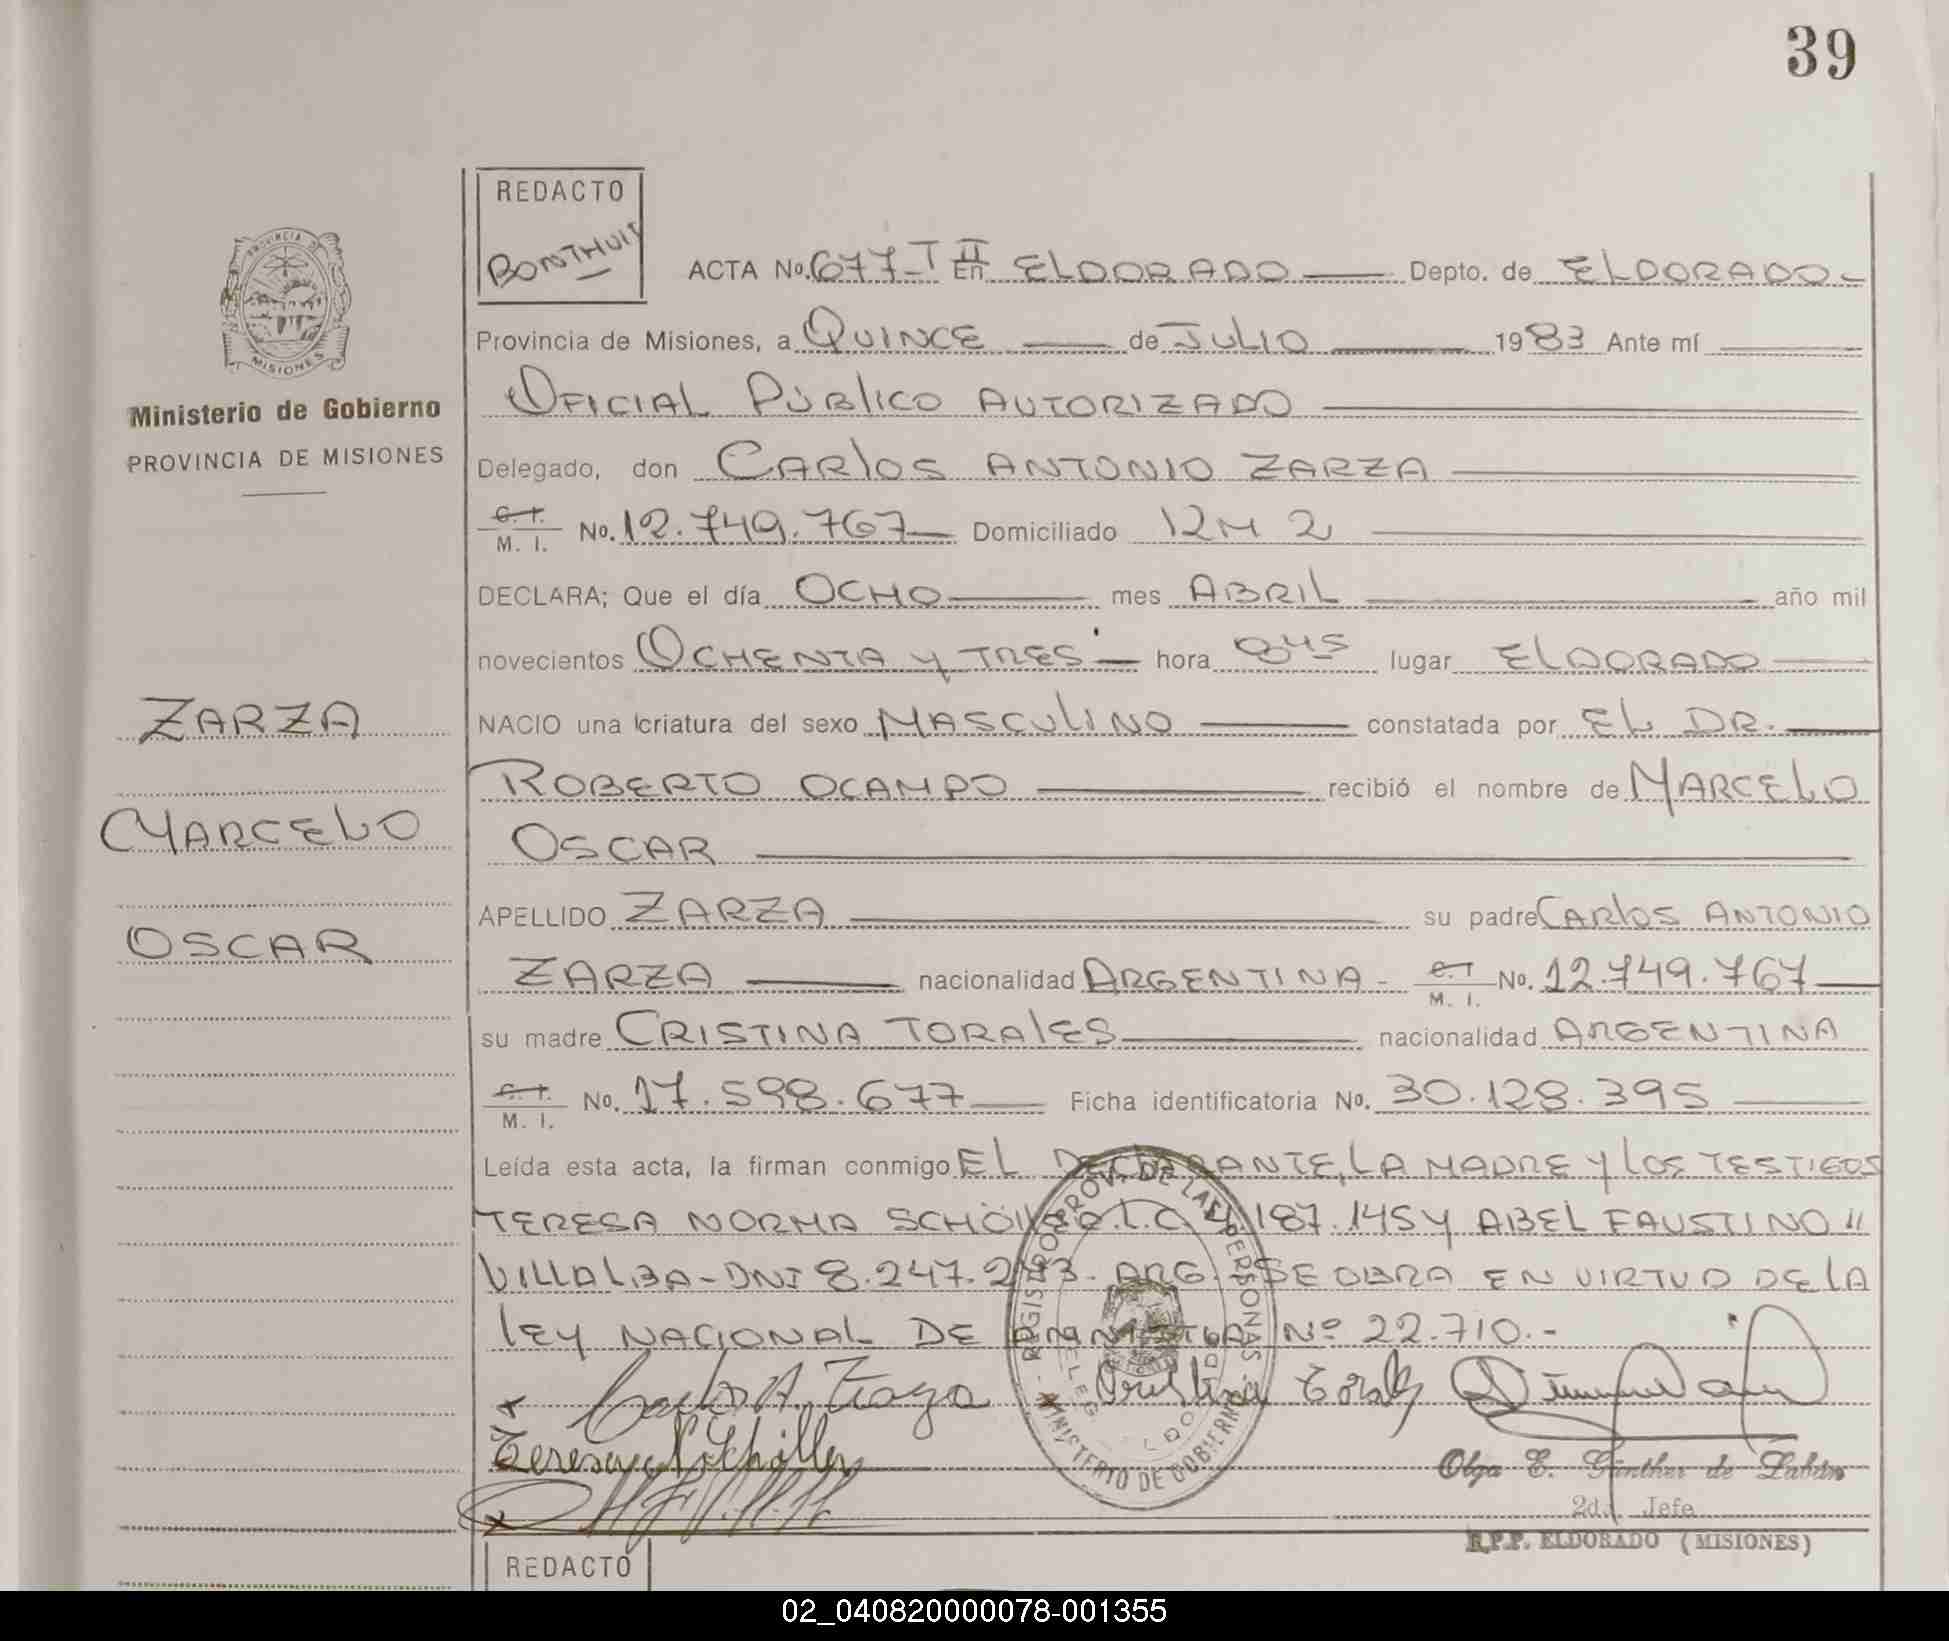 39
REDACTO
BONTHUIS
PROVINCIA DE
MISIONES
Ministerio de Gobierno
PROVINCIA DE MISIONES
ZARZA
MARCELO
OSCAR
ACTA No. 677-T II En ELDORADO Depto. de ELDORADO-
Provincia de Misiones, a QUINCE de JULIO 1983 Ante mí
OFICIAL PÚBLICO AUTORIZADO
Delegado, don CARLOS ANTONIO ZARZA
C. I. M. I. No. 12.749.767 Domiciliado KM 2
DECLARA; Que el día OCHO mes ABRIL año mil
novecientos OCHENTA Y TRES hora 845 lugar ELDORADO
NACIO una criatura del sexo MASCULINO constatada por EL DR.
ROBERTO OCAMPO recibió el nombre de MARCELO
OSCAR
APELLIDO ZARZA su padre CARLOS ANTONIO
ZARZA nacionalidad ARGENTINA - C. I. M. I. No. 12.749.767
su madre CRISTINA TORALES nacionalidad ARGENTINA
C. I. M. I. No. 17.598.677 Ficha identificatoria No. 30.128.395
Leída esta acta, la firman conmigo EL DECLARANTE, LA MADRE Y LOS TESTIGOS
TERESA NORMA SCHÖLLER L.C. 187.145 Y ABEL FAUSTINO "
VILLALBA - DNI 8.247. ARG. - SE OBRA EN VIRTUD DE LA
LEY NACIONAL DE AMNISTIA Nº 22.710.-
Carlos A. Zarza Cristina Torales
Teresa N. Schöller
REGISTRO PROV. DE LAS PERSONAS
MINISTERIO DE GOBIERNO
Olga E. Günther de Labán
2da. Jefe
R.P.P. ELDORADO (MISIONES)
REDACTO
02_040820000078-001355